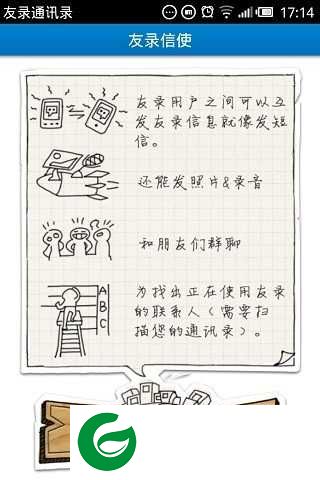 友录通讯录
17:14
友录信使
友录用户之间可以互
发友录信息就像发短
信。
还能发照片&录音
和朋友们群聊
A
B
C
为找出正在使用友录
的联系人（需要扫
描您的通讯录）。